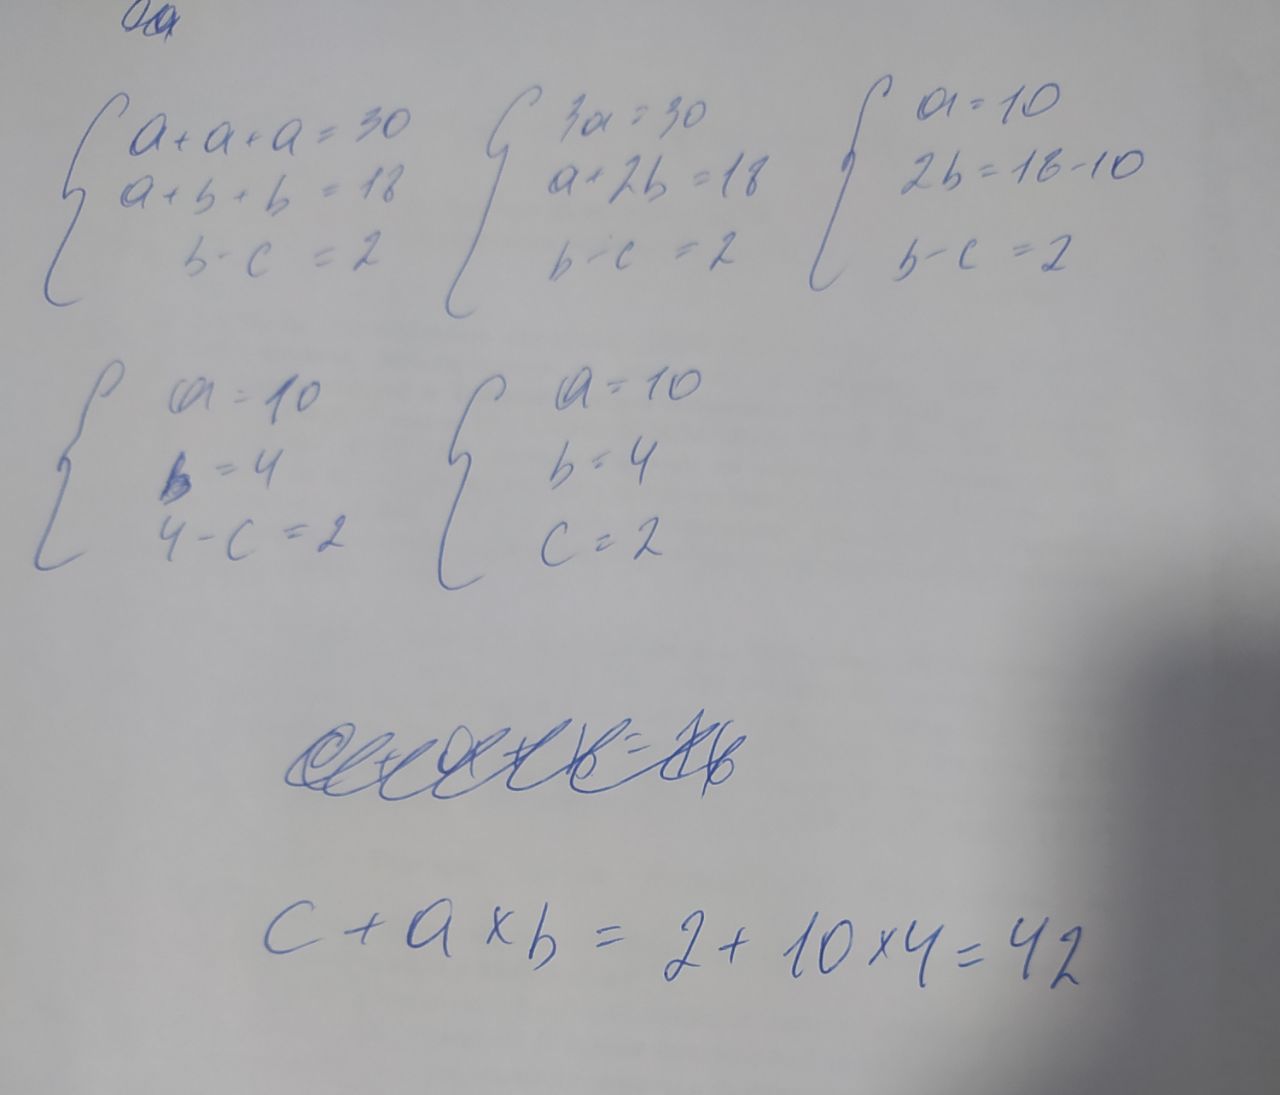 a+a+a=30
a+b+b=18
b-c=2
3a=30
a+2b=18
b-c=2
a=10
2b=18-10
b-c=2
a=10
b=4
4-c=2
a=10
b=4
c=2
c+a×b=2+10×4=42